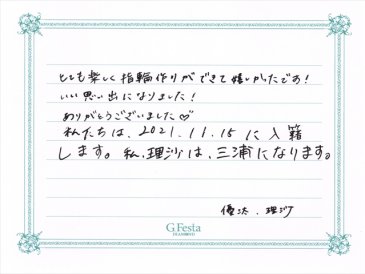 とても楽しく指輪作りができて嬉しかったです!
いい思い出になりました!
ありがとうございました♡
私たちは、2021.11.15に入籍
します。私、理沙は、三浦になります。
優汰、理沙
G.Festa